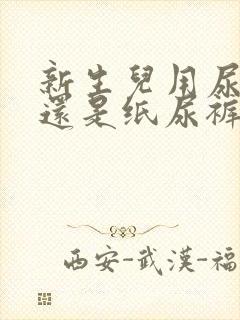 新生兒用尿
還是纸尿裤
西安-武漢-福